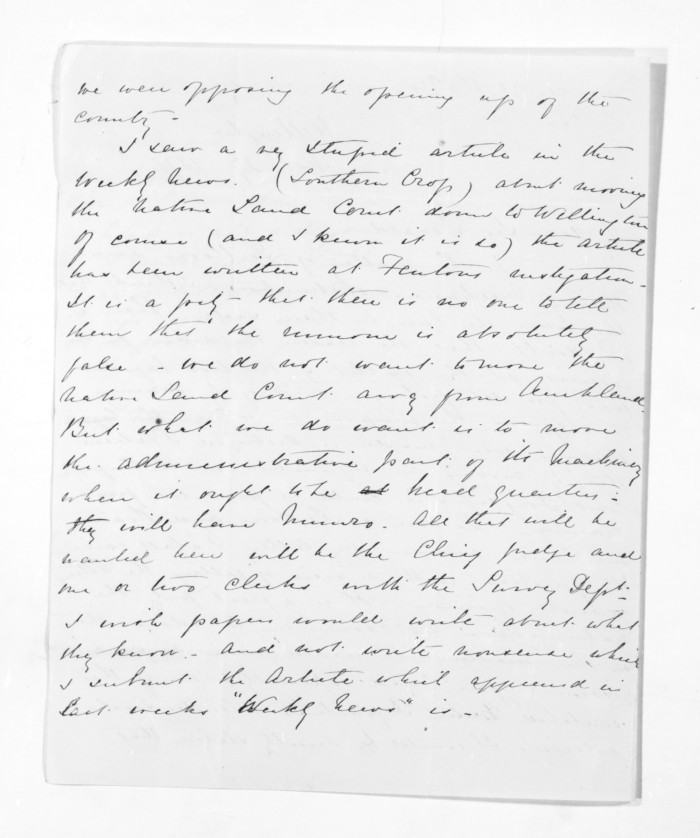 we were opposing the opening up of the
country -
I saw a very stupid article in the
Weekly News. (Southern Cross) about moving
the Native Land Court down to Wellington
Of course (and I know it is so) the article
has been written at Fentons instigation -
It is a pity - that there is no one to tell
them that the rumour is absolutely
false - we do not want to move the
Native Land Court away from Auckland.
But what we do want is to move
the administrative part of its Machinery
where it ought to be at head quarters -
they will have Munro. All that will be
wanted here will be the Chief Judge and
one or two clerks with the Survey Dept -
I wish papers would write about what
they know - and not write nonsense which
I submit the Article which appeared in
last weeks "Weekly News" is -